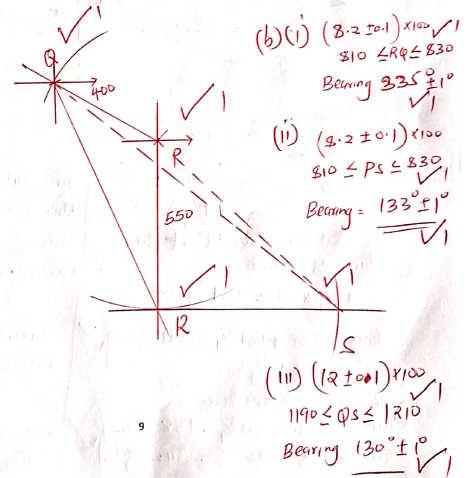 ✓1
Q
400
✓1
R
550
✓1
✓1
R
S
9
(b)(i) (8.2 ±0.1)×100 ✓1
810 ≤RQ≤ 830
Bearing 335° ±1°
✓1
(ii) (8.2 ±0.1)×100
810 ≤ PS ≤ 830
✓1
Bearing = 133° ±1°
✓1
(iii) (12 ±0.1)×100
✓1
1190 ≤ QS ≤ 1210
Bearing 130° ± 1°
✓1